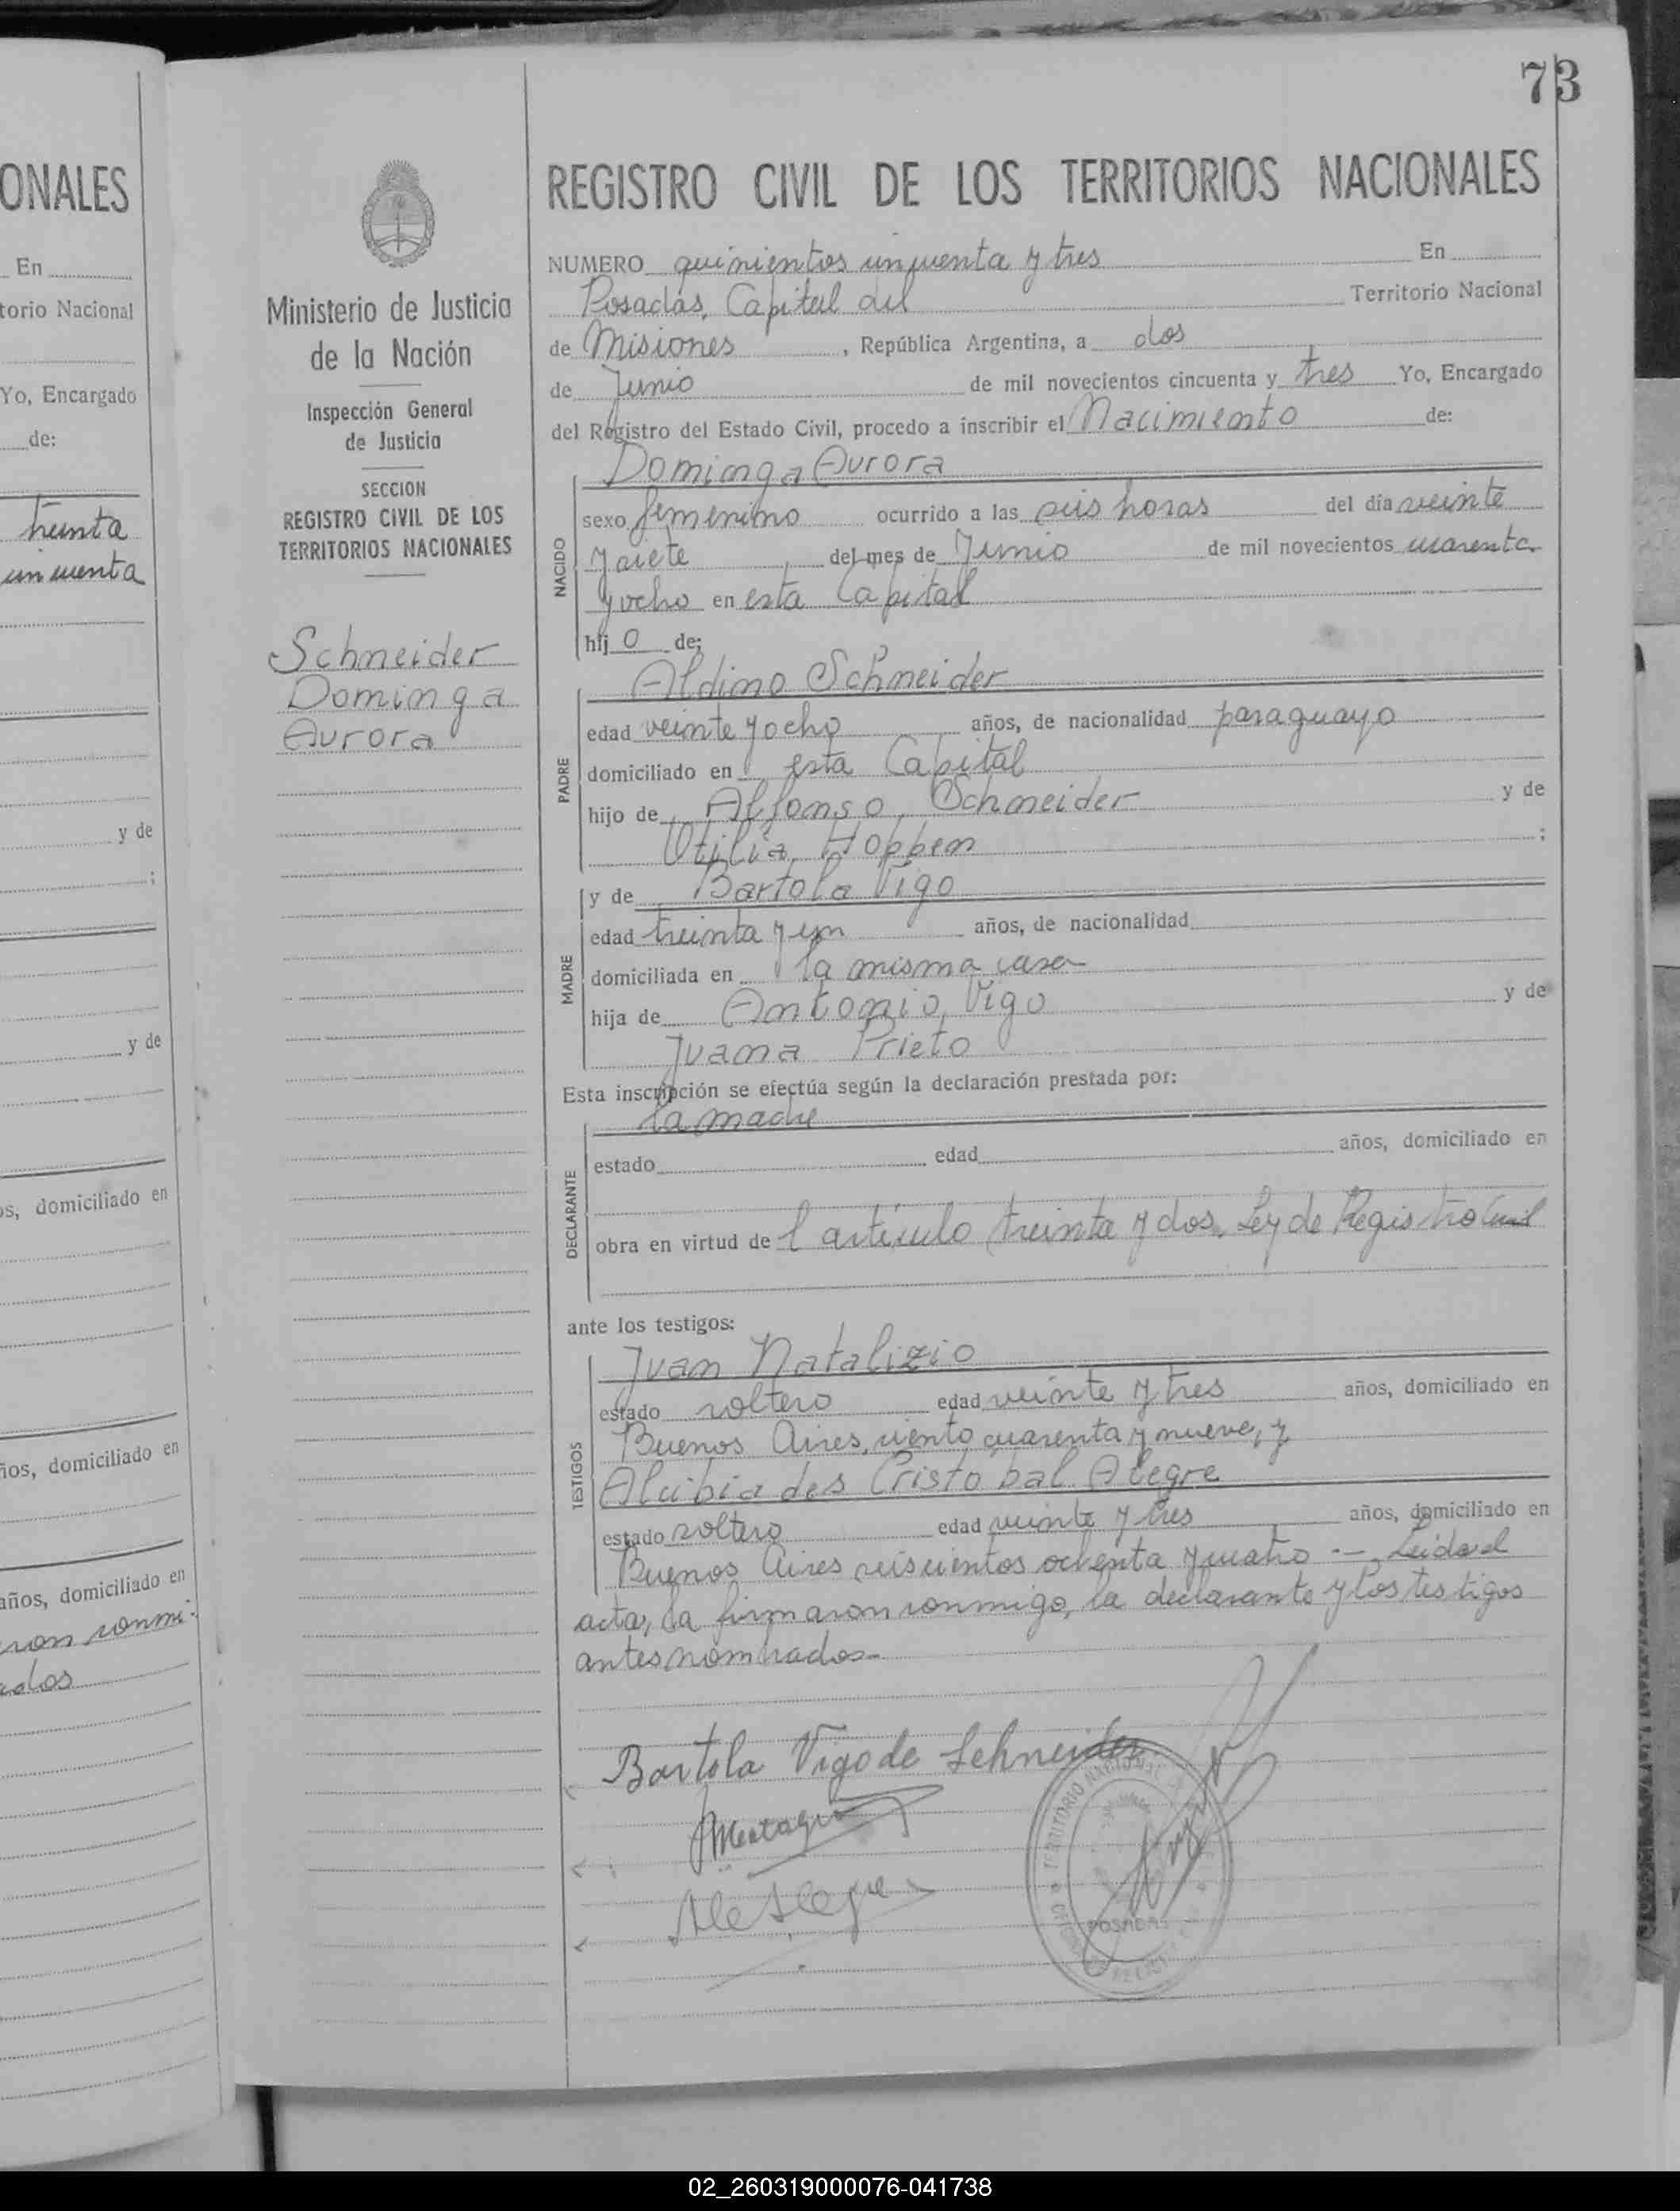 73
ONALES
En
torio Nacional
Yo, Encargado
de:
treinta
cincuenta
y de
;
y de
os, domiciliado en
ños, domiciliado en
años, domiciliado en
ron conmi-
ados
Ministerio de Justicia
de la Nación
Inspección General
de Justicia
SECCION
REGISTRO CIVIL DE LOS
TERRITORIOS NACIONALES
Schneider
Dominga
Aurora
REGISTRO CIVIL DE LOS TERRITORIOS NACIONALES
NUMERO quinientos cincuenta y tres En
Posadas, Capital del Territorio Nacional
de Misiones, República Argentina, a dos
de Junio de mil novecientos cincuenta y tres Yo, Encargado
del Registro del Estado Civil, procedo a inscribir el Nacimiento de:
Dominga Aurora
NACIDO
sexo femenino ocurrido a las seis horas del día veinte
y siete del mes de Junio de mil novecientos cuarenta
y ocho en esta Capital
hij o de:
Aldino Schneider
PADRE
edad veinte y ocho años, de nacionalidad paraguayo
domiciliado en esta Capital
hijo de Alfonso Schneider y de
Otilia Hoppen ;
y de Bartola Vigo
MADRE
edad treinta y un años, de nacionalidad
domiciliada en la misma casa
hija de Antonio Vigo y de
Juana Prieto
Esta inscripción se efectúa según la declaración prestada por:
la madre
DECLARANTE
estado edad años, domiciliado en
obra en virtud de l artículo treinta y dos, Ley de Registro Civil
ante los testigos:
Juan Natalizio
TESTIGOS
estado soltero edad veinte y tres años, domiciliado en
Buenos Aires, ciento cuarenta y nueve, y
Alcibiades Cristobal Alegre
estado soltero edad veinte y tres años, domiciliado en
Buenos Aires seiscientos ochenta y cuatro .— Leida el
acta, la firmaron conmigo, la declarante y los testigos
antes nombrados.-
Bartola Vigo de Schneider
TERRITORIO NACIONAL
POSADAS
02_260319000076-041738